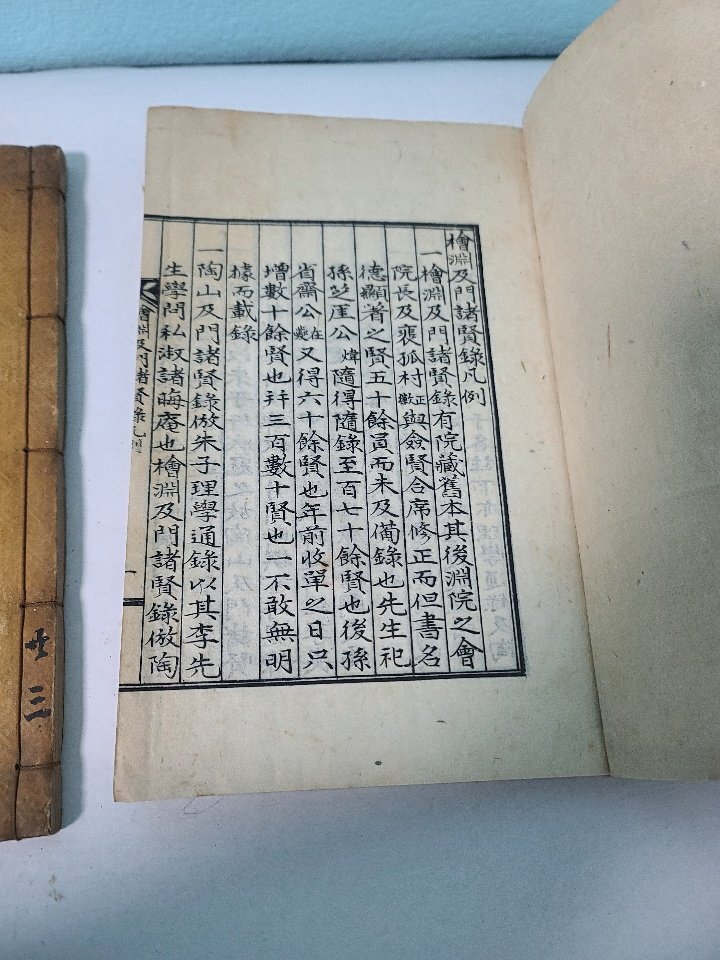 檜淵及門諸賢錄凡例
一檜淵及門諸賢錄有院藏舊本其後淵院之會
院長及裵孤村正徽與僉賢合席修正而但書名
德顯著之賢五十餘員而未及備錄也先生祀
孫芝厓公煒隨得隨錄至百七十餘賢也後孫
省齋公在夔又得六十餘賢也年前收單之日只
增數十餘賢也幷三百數十賢也一不敢無明
據而載錄
一陶山及門諸賢錄倣朱子理學通錄以其李先
生學問私淑諸晦庵也檜淵及門諸賢錄倣陶
檜淵及門諸賢錄凡例
一
共三